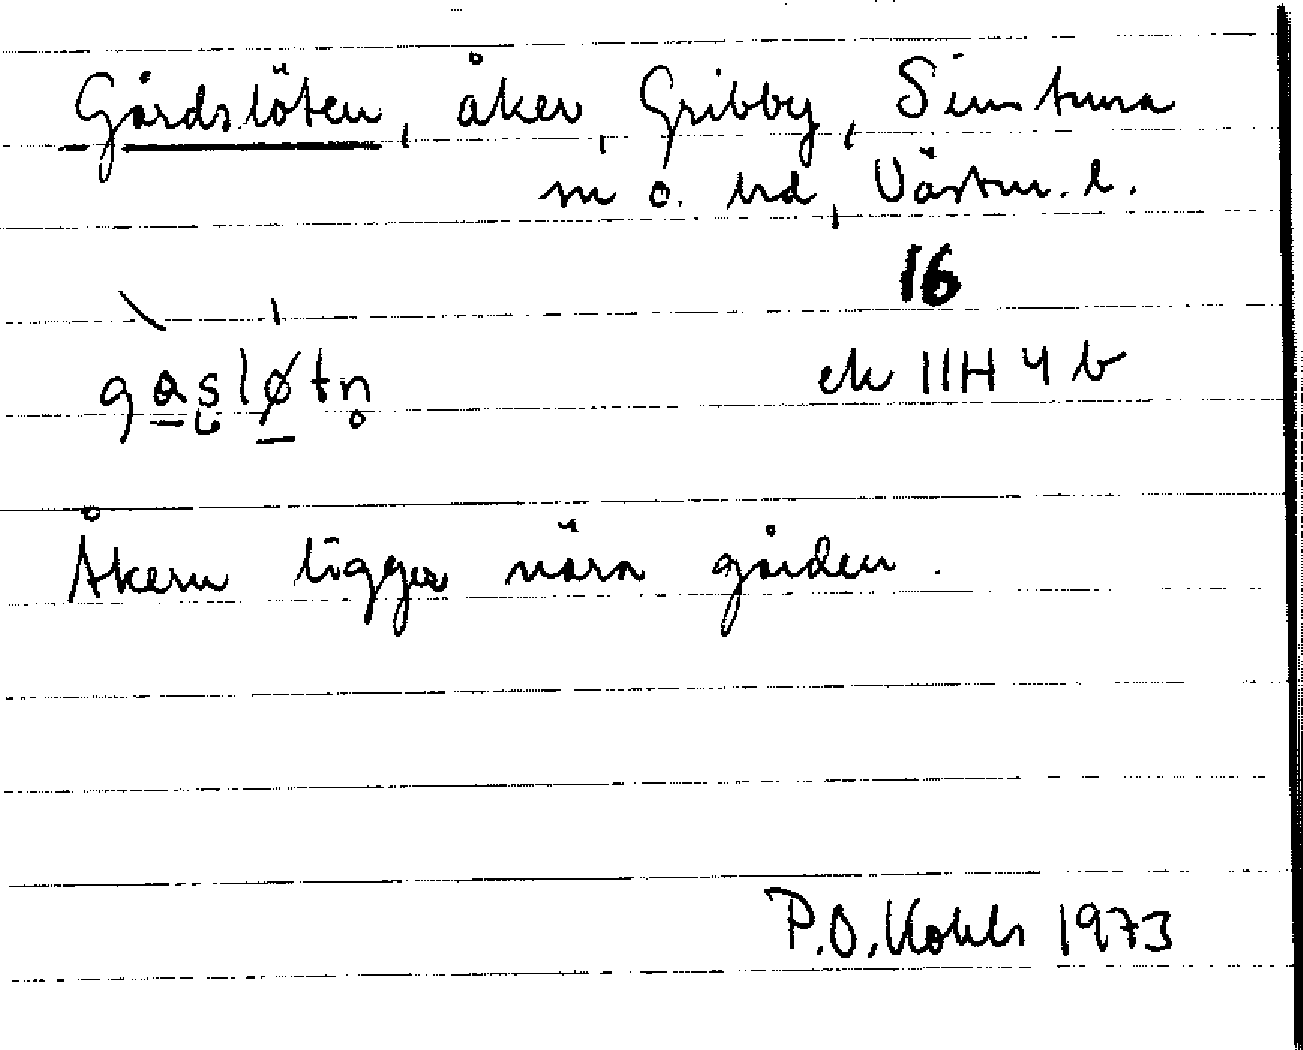 Gårdslöten, åker, Gribby, Simtuna
sn o. hd, Västm. l.
16
gasløtn̥
ek 11H 4 b
Åkern ligger nära gården.
P.O. Kohls 1973